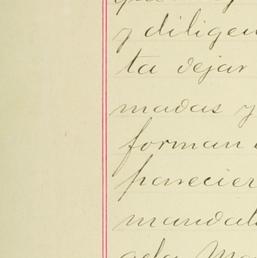 y diligen
ta dejar
madas y
forman
parecier
mandat